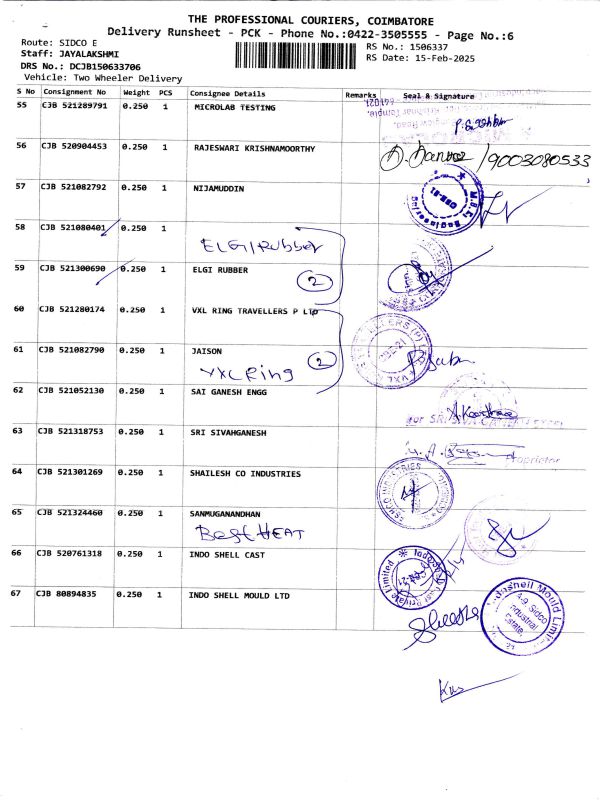 THE PROFESSIONAL COURIERS, COIMBATORE
Delivery Runsheet - PCK - Phone No.:0422-3505555 - Page No.:6
Route: SIDCO E
Staff: JAYALAKSHMI
DRS No.: DCJB150633706
Vehicle: Two Wheeler Delivery
RS No.: 1506337
RS Date: 15-Feb-2025
S No Consignment No Weight PCS Consignee Details Remarks Seal & Signature
55 CJB 521289791 0.250 1 MICROLAB TESTING
56 CJB 520904453 0.250 1 RAJESWARI KRISHNAMOORTHY 9003080533
57 CJB 521082792 0.250 1 NIJAMUDDIN
58 CJB 521080401 0.250 1
ELGI/Rubber
59 CJB 521300690 0.250 1 ELGI RUBBER 2
60 CJB 521280174 0.250 1 VXL RING TRAVELLERS P LTD
61 CJB 521082790 0.250 1 JAISON 2
VXL Ring
62 CJB 521052130 0.250 1 SAI GANESH ENGG
63 CJB 521318753 0.250 1 SRI SIVAHGANESH
Proprietor
64 CJB 521301269 0.250 1 SHAILESH CO INDUSTRIES
65 CJB 521324460 0.250 1 SANMUGANANDHAN
Best HEAT
66 CJB 520761318 0.250 1 INDO SHELL CAST
67 CJB 80894835 0.250 1 INDO SHELL MOULD LTD
Indoshell Mould Limited
A-9, Sidco
Industrial
Estate,